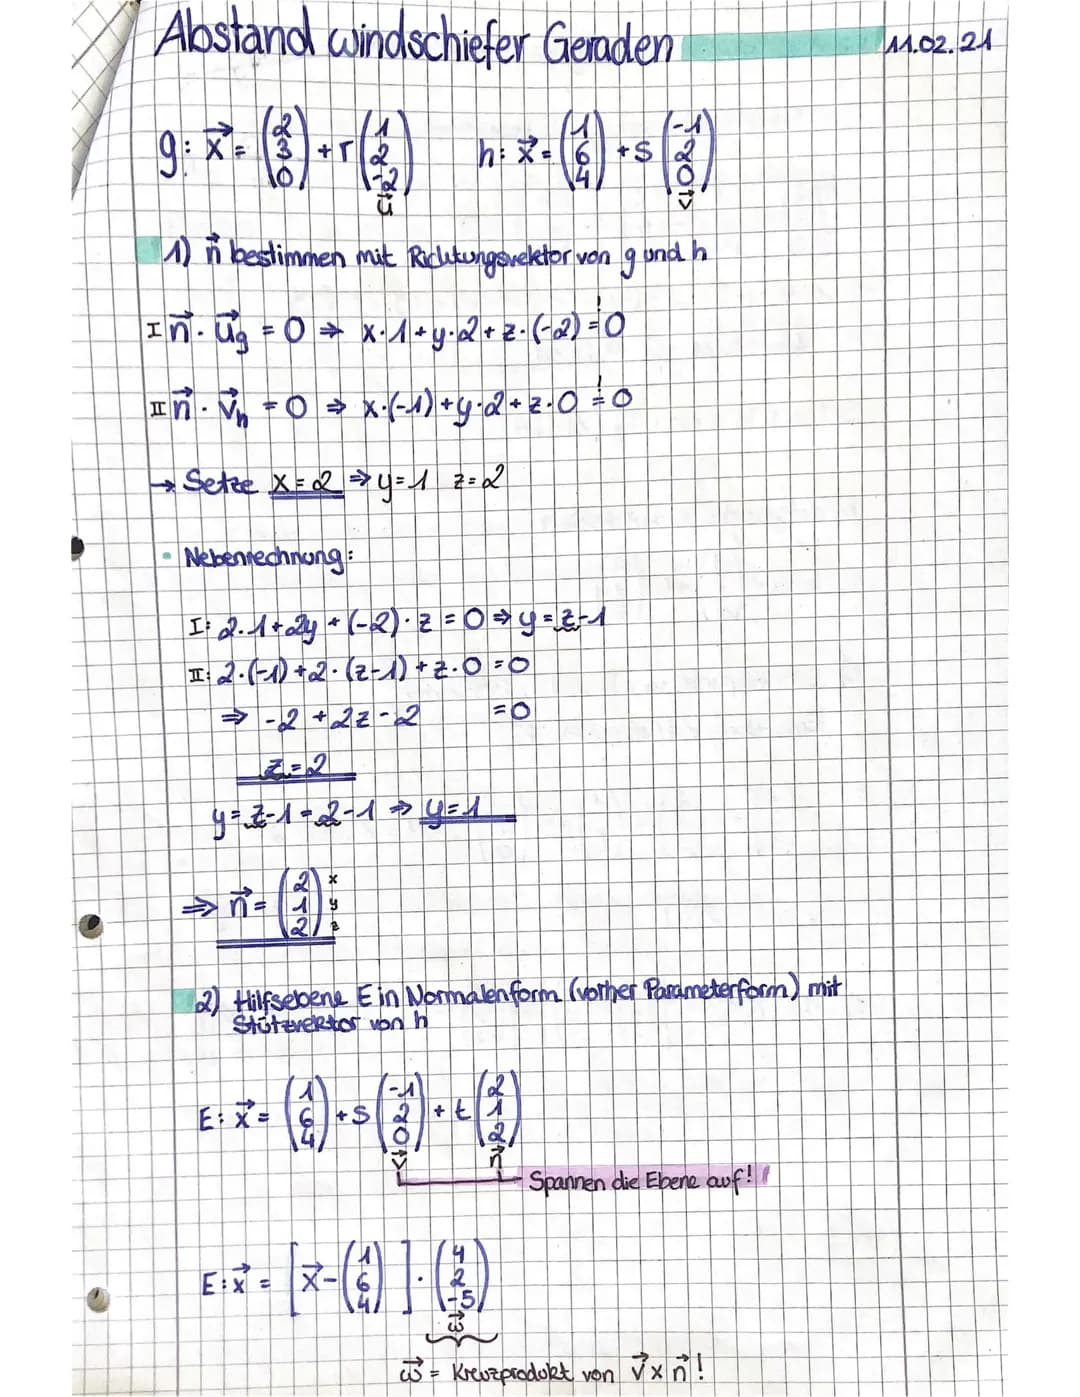 Abstand windschiefer Geraden 11.02.21
g: x⃗ = (2 3 0) + r (1 2 -2) h: x⃗ = (1 6 4) + s (-1 2 0)
u⃗ v⃗
1) n⃗ bestimmen mit Richtungsvektor von g und h
I n⃗ · u⃗g = 0 ⇒ x·1 + y·2 + z·(-2) =! 0
II n⃗ · v⃗h = 0 ⇒ x·(-1) + y·2 + z·0 =! 0
→ Setze x = 2 ⇒ y = 1 z = 2
• Nebenrechnung:
I: 2·1 + 2y + (-2)·z = 0 ⇒ y = z-1
II: 2·(-1) + 2·(z-1) + z·0 = 0
⇒ -2 + 2z - 2 = 0
z = 2
y = z-1 = 2-1 ⇒ y = 1
⇒ n⃗ = (2 1 2) x y z
2) Hilfsebene E in Normalenform (vorher Parameterform) mit
Stützvektor von h
E: x⃗ = (1 6 4) + s (-1 2 0) + t (2 1 2)
v⃗ n⃗
Spannen die Ebene auf!
E: x⃗ = [x⃗ - (1 6 4)] · (4 2 -5)
w⃗
w⃗ = Kreuzprodukt von v⃗ x n⃗!